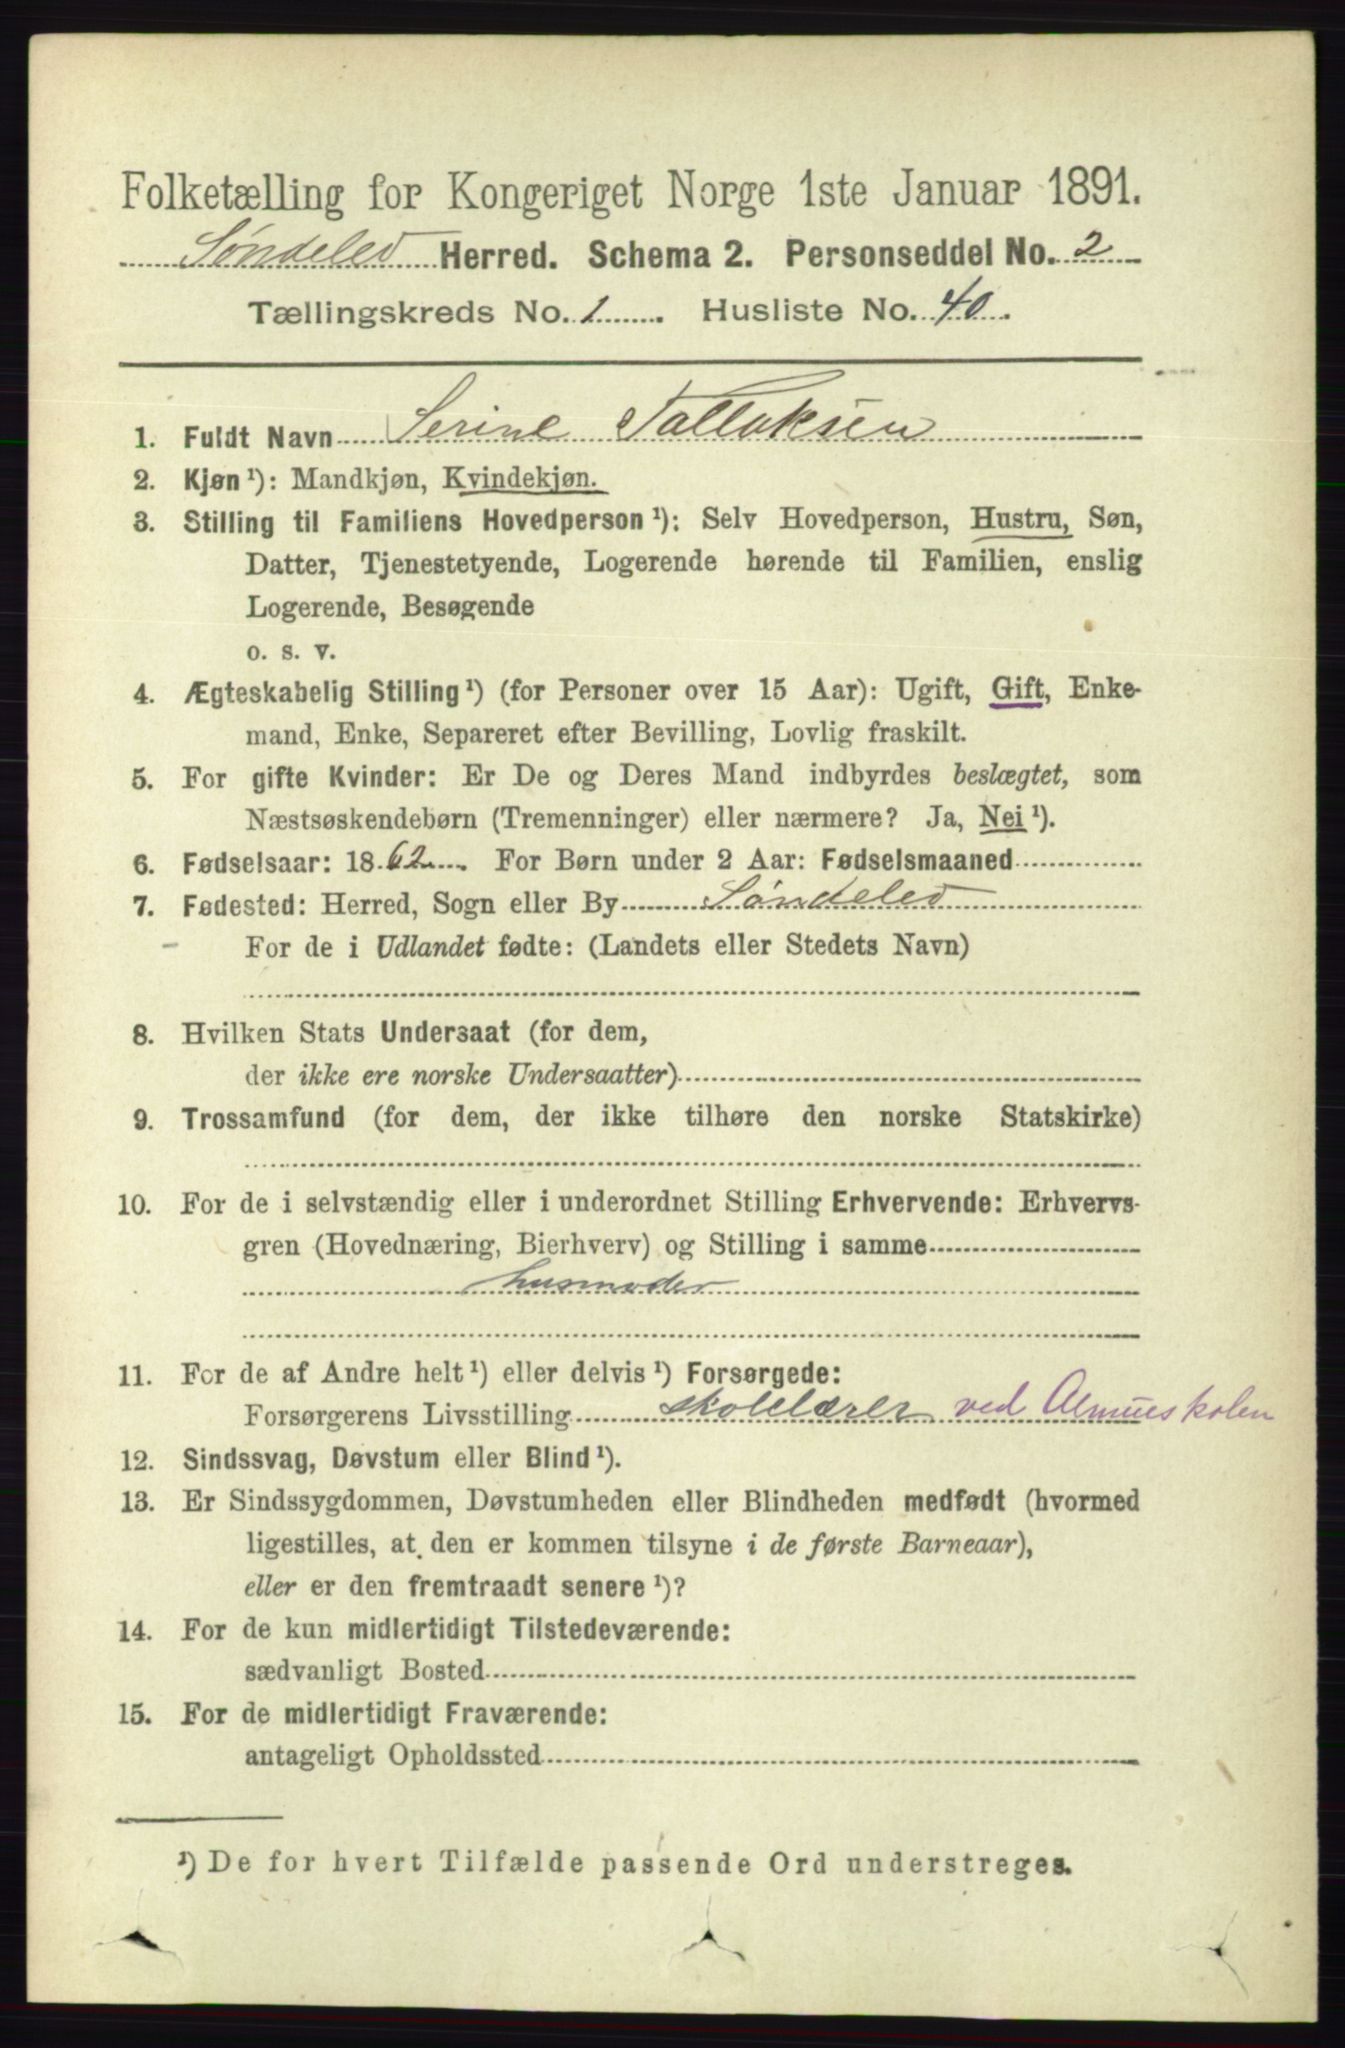 Folketælling for Kongeriget Norge 1ste Januar 1891.
Søndeled Herred. Schema 2. Personseddel No. 2
Tællingskreds No. 1 . Husliste No. 40 .
1. Fuldt Navn Serine Tallaksen
2. Kjøn ¹): Mandkjøn, Kvindekjøn.
3. Stilling til Familiens Hovedperson ¹): Selv Hovedperson, Hustru, Søn,
Datter, Tjenestetyende, Logerende hørende til Familien, enslig
Logerende, Besøgende
o. s. v.
4. Ægteskabelig Stilling ¹) (for Personer over 15 Aar): Ugift, Gift, Enke-
mand, Enke, Separeret efter Bevilling, Lovlig fraskilt.
5. For gifte Kvinder: Er De og Deres Mand indbyrdes beslægtet, som
Næstsøskendebørn (Tremenninger) eller nærmere? Ja, Nei ¹).
6. Fødselsaar: 1862. For Børn under 2 Aar: Fødselsmaaned
7. Fødested: Herred, Sogn eller By Søndeled
For de i Udlandet fødte: (Landets eller Stedets Navn)
8. Hvilken Stats Undersaat (for dem,
der ikke ere norske Undersaatter)
9. Trossamfund (for dem, der ikke tilhøre den norske Statskirke)
10. For de i selvstændig eller i underordnet Stilling Erhvervende: Erhvervs-
gren (Hovednæring, Bierhverv) og Stilling i samme
husmoder
11. For de af Andre helt ¹) eller delvis ¹) Forsørgede:
Forsørgerens Livsstilling skolelærer ved Almueskolen
12. Sindssvag, Døvstum eller Blind ¹).
13. Er Sindssygdommen, Døvstumheden eller Blindheden medfødt (hvormed
ligestilles, at den er kommen tilsyne i de første Barneaar),
eller er den fremtraadt senere ¹)?
14. For de kun midlertidigt Tilstedeværende:
sædvanligt Bosted
15. For de midlertidigt Fraværende:
antageligt Opholdssted
¹) De for hvert Tilfælde passende Ord understreges.